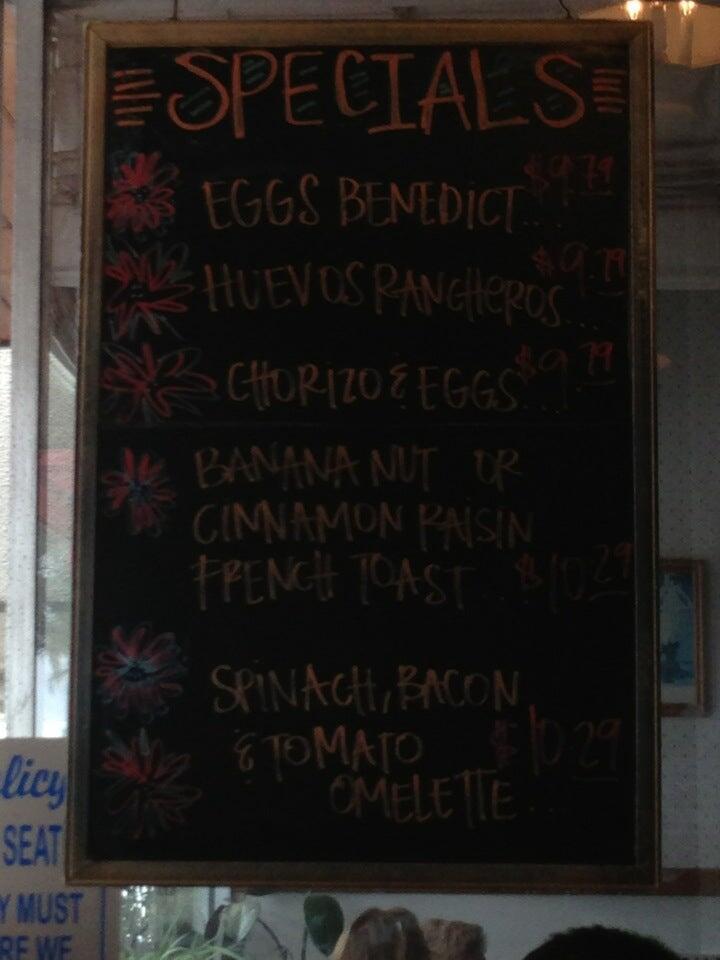 SPECIALS
EGGS BENEDICT... $9.79
HUEVOS RANCHEROS... $9.79
CHORIZO & EGGS... $9.79
BANANA NUT OR
CINNAMON RAISIN
FRENCH TOAST... $10.29
SPINACH, BACON
& TOMATO $10.29
OMELETTE...
licy
SEAT
Y MUST
RE WE